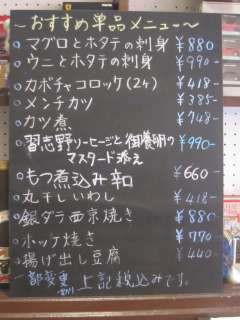 ～おすすめ単品メニュー～
○マグロとホタテの刺身 ￥880
○ウニとホタテの刺身 ￥990-
○カボチャコロッケ(2ヶ) ￥418-
○メンチカツ ￥385-
○カツ煮 ￥748-
○習志野ソーセージと御養卵の ￥990-
マスタード添え
○もつ煮込み辛口 ￥660
○丸干しいわし ￥418-
○銀ダラ西京焼き ￥880
○ホッケ焼き ￥770
○揚げ出し豆腐 ￥440
一部変更 上記税込みです。